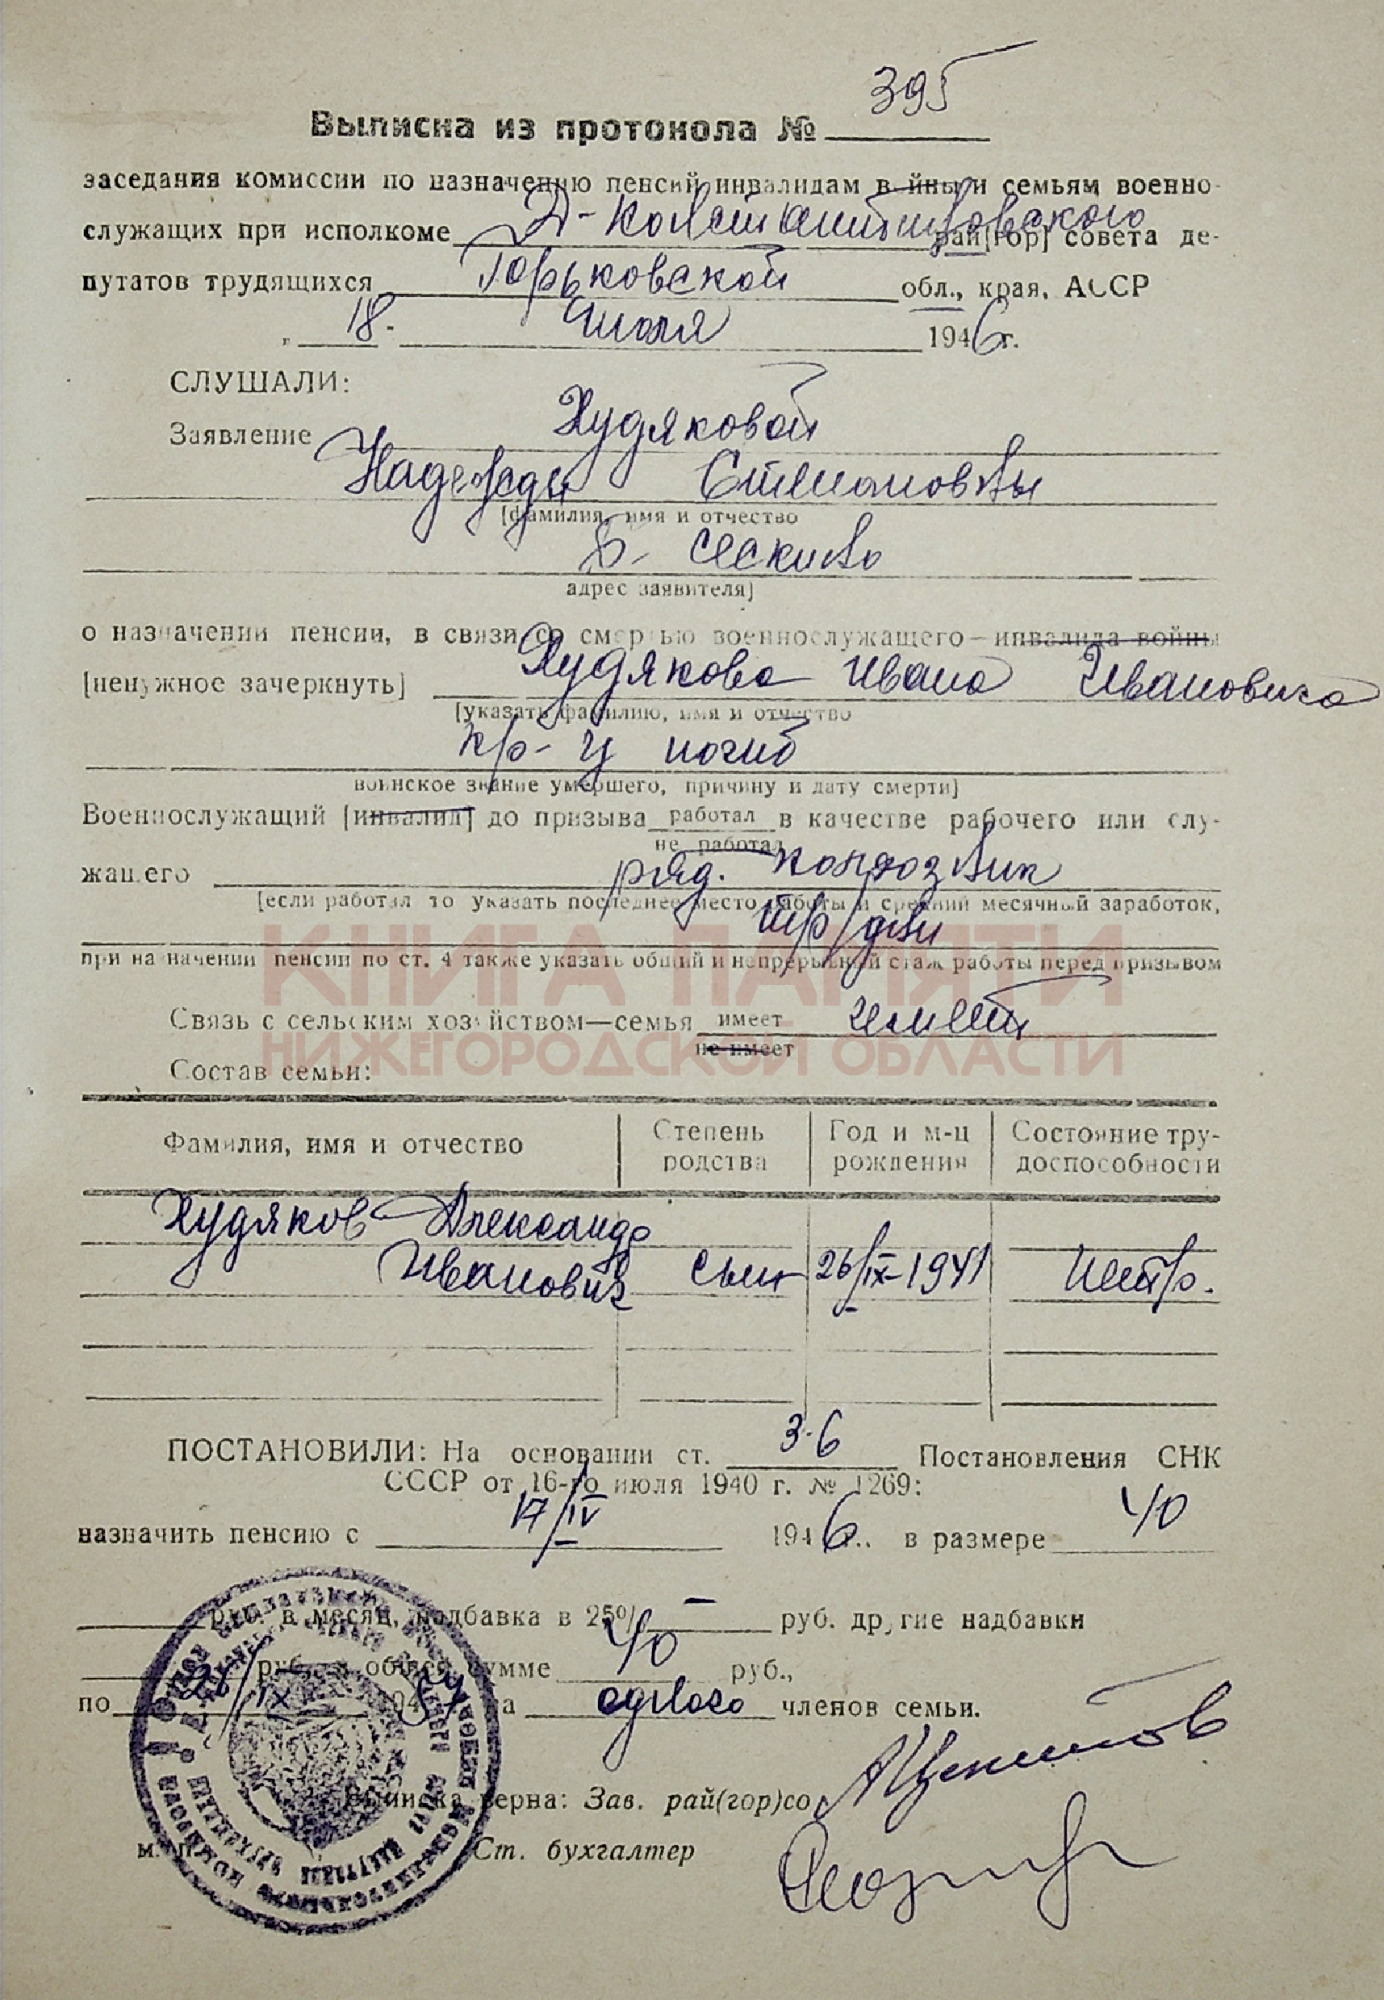 Выписка из протокола № 395
заседания комиссии по назначению пенсий инвалидам войны и семьям военно-
служащих при исполкоме Д-Константиновского рай[гор] совета де-
путатов трудящихся Горьковской обл., края, АССР
„ 18. Июля 1946 г.
СЛУШАЛИ:
Заявление Худяковой
Надежды Степановны
[фамилия, имя и отчество
Б- Сескино
адрес заявителя]
о назначении пенсии, в связи со смертью военнослужащего—инвалида войны
[ненужное зачеркнуть] Худякова Ивана Ивановича
[указать фамилию, имя и отчество
кр-ц погиб
воинское звание умершего, причину и дату смерти]
Военнослужащий [инвалид] до призыва работал в качестве рабочего или слу-
не работал
жащего ряд. колхозник
[если работал то указать последнее место работы и средний месячный заработок,
тр/дни
при назначении пенсии по ст. 4 также указать общий и непрерывный стаж работы перед призывом
КНИГА ПАМЯТИ
Связь с сельским хозяйством—семья имеет имеет
не имеет
НИЖЕГОРОДСКОЙ ОБЛАСТИ
Состав семьи:
Фамилия, имя и отчество Степень родства Год и м-ц рождения Состояние тру-доспособности
Худяков Александр
Иванович сын 26/IX-1941 нетр.
ПОСТАНОВИЛИ: На основании ст. 3-6 Постановления СНК
СССР от 16-го июля 1940 г. № 1269:
назначить пенсию с 17/IV 1946 г., в размере 40
руб. в месяц, надбавка в 25% — руб. другие надбавки
руб., в общей сумме 40 руб.,
по 26/IX на одного членов семьи.
Выписка верна: Зав. рай(гор)со
м. п. Ст. бухгалтер